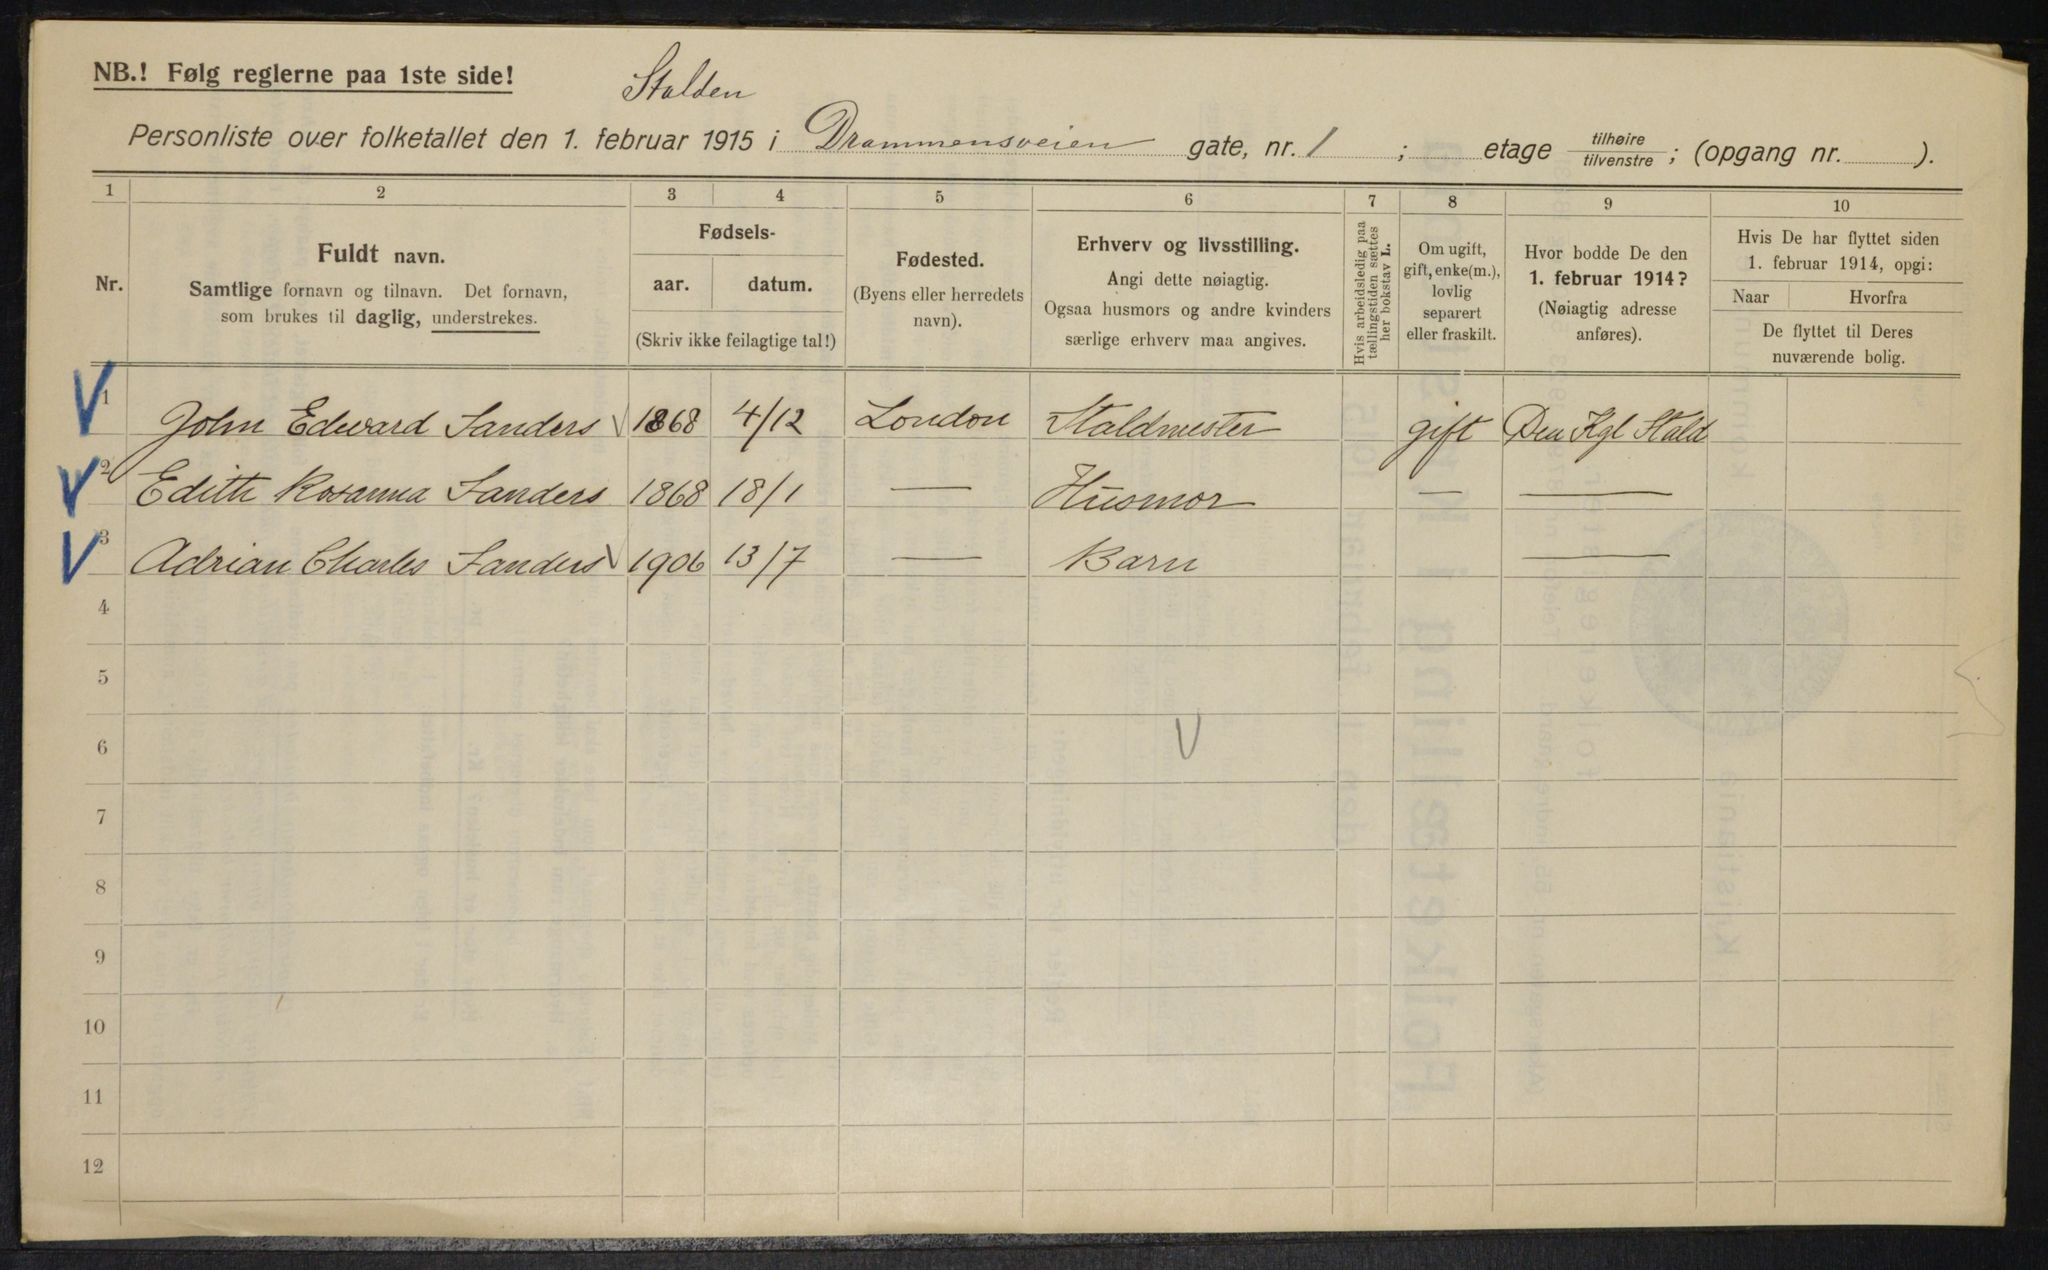 NB.! Følg reglerne paa 1ste side!
Stalden
Personliste over folketallet den 1. februar 1915 i Drammensveien gate, nr. 1 ; etage tilhøire / tilvenstre ; (opgang nr. ).
1 2 3 4 5 6 7 8 9 10
Nr.
Fuldt navn.
Samtlige fornavn og tilnavn. Det fornavn,
som brukes til daglig, understrekes.
Fødsels-
aar. datum.
(Skriv ikke feilagtige tal!)
Fødested.
(Byens eller herredets
navn).
Erhverv og livsstilling.
Angi dette nøiagtig.
Ogsaa husmors og andre kvinders
særlige erhverv maa angives.
Hvis arbeidsledig paa
tællingstiden sættes
her bokstav L.
Om ugift,
gift, enke(m.),
lovlig
separert
eller fraskilt.
Hvor bodde De den
1. februar 1914?
(Nøiagtig adresse
anføres).
Hvis De har flyttet siden
1. februar 1914, opgi:
Naar Hvorfra
De flyttet til Deres
nuværende bolig.
1 John Edward Sanders 1868 4/12 London Staldmester gift Den Kgl Stald
2 Edith Rosanna Sanders 1868 18/1 — Husmor — —
3 Adrian Charles Sanders 1906 13/7 — Barn —
4
5
6
7
8
9
10
11
12